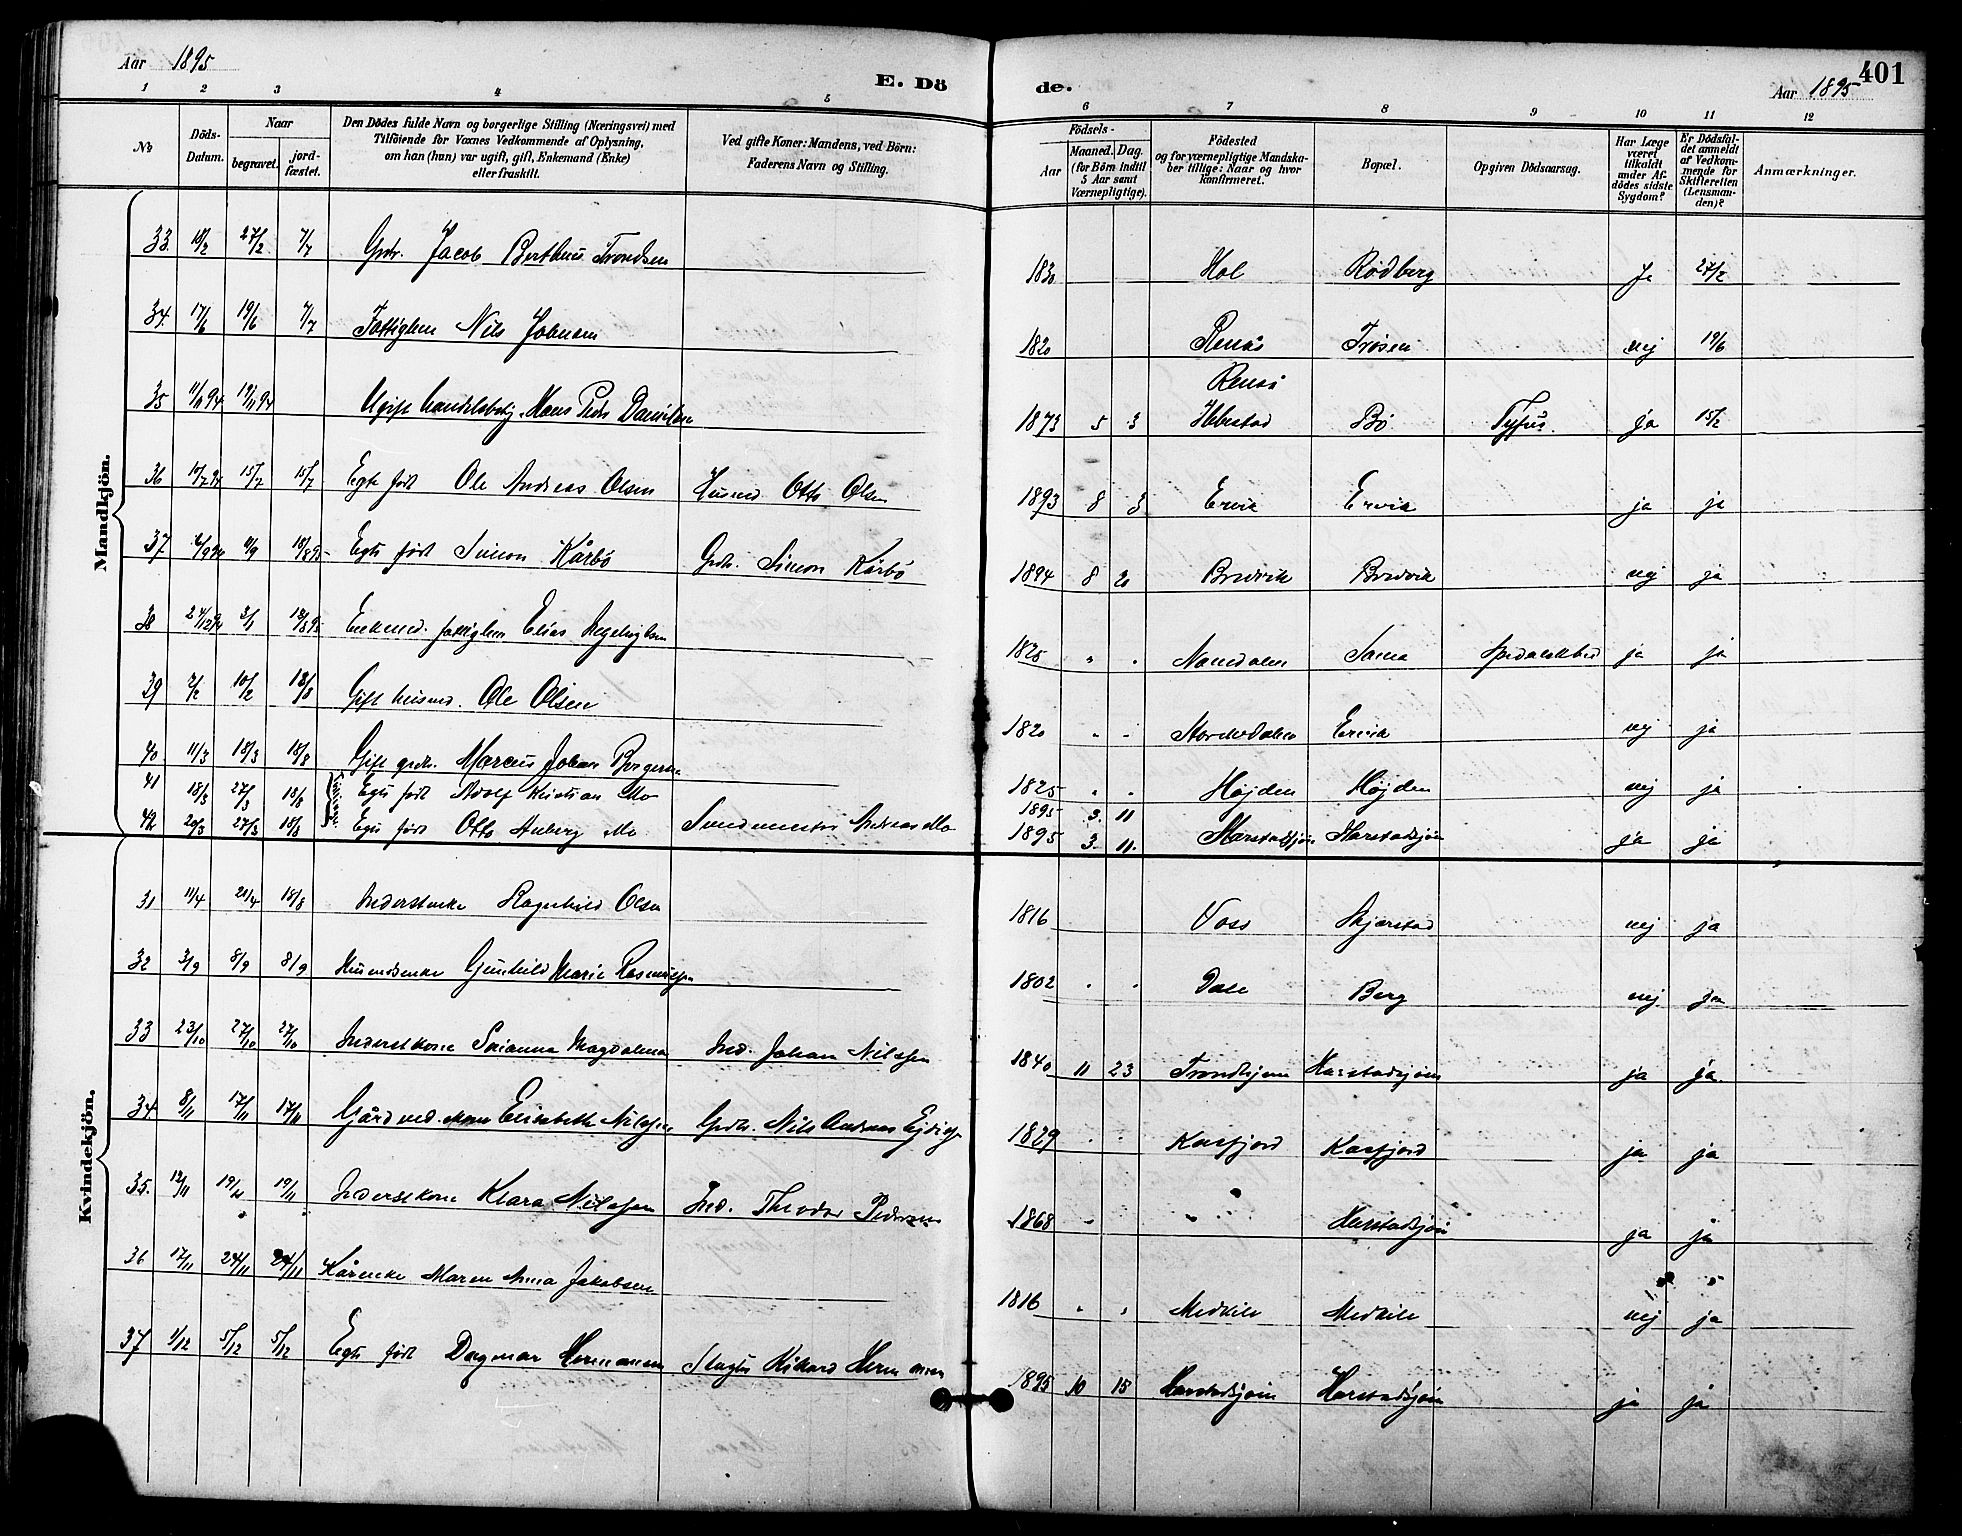 Aar 1895
E. Döde.
Aar 1895
401
1 2 3 4 5 6 7 8 9 10 11 12
No
Döds-Datum.
Naar
begravet.
jordfæstet.
Den Dödes fulde Navn og borgerlige Stilling (Næringsvei) med
Tilföiende for Voxnes Vedkommende af Oplysning,
om han (hun) var ugift, gift, Enkemand (Enke)
eller fraskilt.
Ved gifte Koner: Mandens, ved Börn:
Faderens Navn og Stilling.
Födsels-
Aar
Maaned. Dag.
(for Börn indtil
5 Aar samt
Værnepligtige).
Födested
og for værnepligtige Mandska-
ber tillige: Naar og hvor
konfirmeret.
Bopæl.
Opgiven Dödsaarsag.
Har Læge
været
tilkaldt
under Af-
dödes sidste
Sygdom?
Er Dödsfal-
det anmeldt
af Vedkom-
mende for
Skifteretten
(Lensman-
den)?
Anmærkninger.
Mandkjön.
33. 18/2 27/2 7/7 Grdr. Jacob Bertheus Trondsen 1830 Hol Rödberg Ja 27/2
34. 17/6 19/6 7/7 Fattiglem Nils Johnsen 1820 Renså Trøsen nej 19/6
35 11/11 94 19/11 94 Ugift handelsbetj. Hans Peder Danielsen 1873 5 3 Renså Ibbestad Bö Tyfus ja 15/2
36 10/7 94 15/7 15/7 Egte født Ole Andreas Olsen Husmd. Otto Olsen 1893 8 3 Ervik Ervik ja ja
37 9/9 18/8 95 Egte født Simon Kårbø Grdr. Simon Kårbø 1894 8 20 Bredvik Bredvik nej ja
38 24/12 94 3/1 18/8 95 Enkemd. fattiglem Elias 1825 " . Namdalen Sama Spedalskhed ja ja
39 2/2 10/2 18/8 Gift husmd. Ole Olsen 1820 " " Ervik nej ja
40 11/3 18/3 18/8 Gift grdr. Marcus Johan 1825 " " Højden Højden nej ja
41 18/3 27/3 18/8 Egte født Adolf Kristian Mo 1895 3. 11
42 20/3 27/3 18/8 Egte født Otto Auberg Mo Andreas Mo 1895 3. 11. Harstadsjøen Harstadsjøen ja ja
Kvindekjön.
31 11/4 21/4 18/8 Inderstenke Ragnhild Olsen 1816 Voss Skjærstad nej ja
32 3/9 8/9 8/9 Husmdsenke Gunhild Marie 1802 " " Dale Berg nej ja
33 23/10 27/10 27/10 Inderstkone Marianna Magdalena Ind. Johan Nilssen 1840 11 23 Trondhjem Harstadsjøen ja ja.
34. 8/11 17/11 17/11 Elisabeth Nilssen Grdr. Nils Andreas 1829 " " Kasfjord Kasfjord ja ja
35. 12/11 19/11 19/11 Inderstkone Klara Nilssen Ind. Theodor Pedersen 1868 " " " Harstadsjøen ja ja
36 17/11 24/11 24/11 Kårenke Maren Anna Jakobsen 1816 " " Medkile Medkile nej ja
37 1/12 5/12 5/12 Egte født Dagmar Hermansen Slagter Rikard Hermansen 1895 10 15 Harstadsjøen Harstadsjøen ja ja